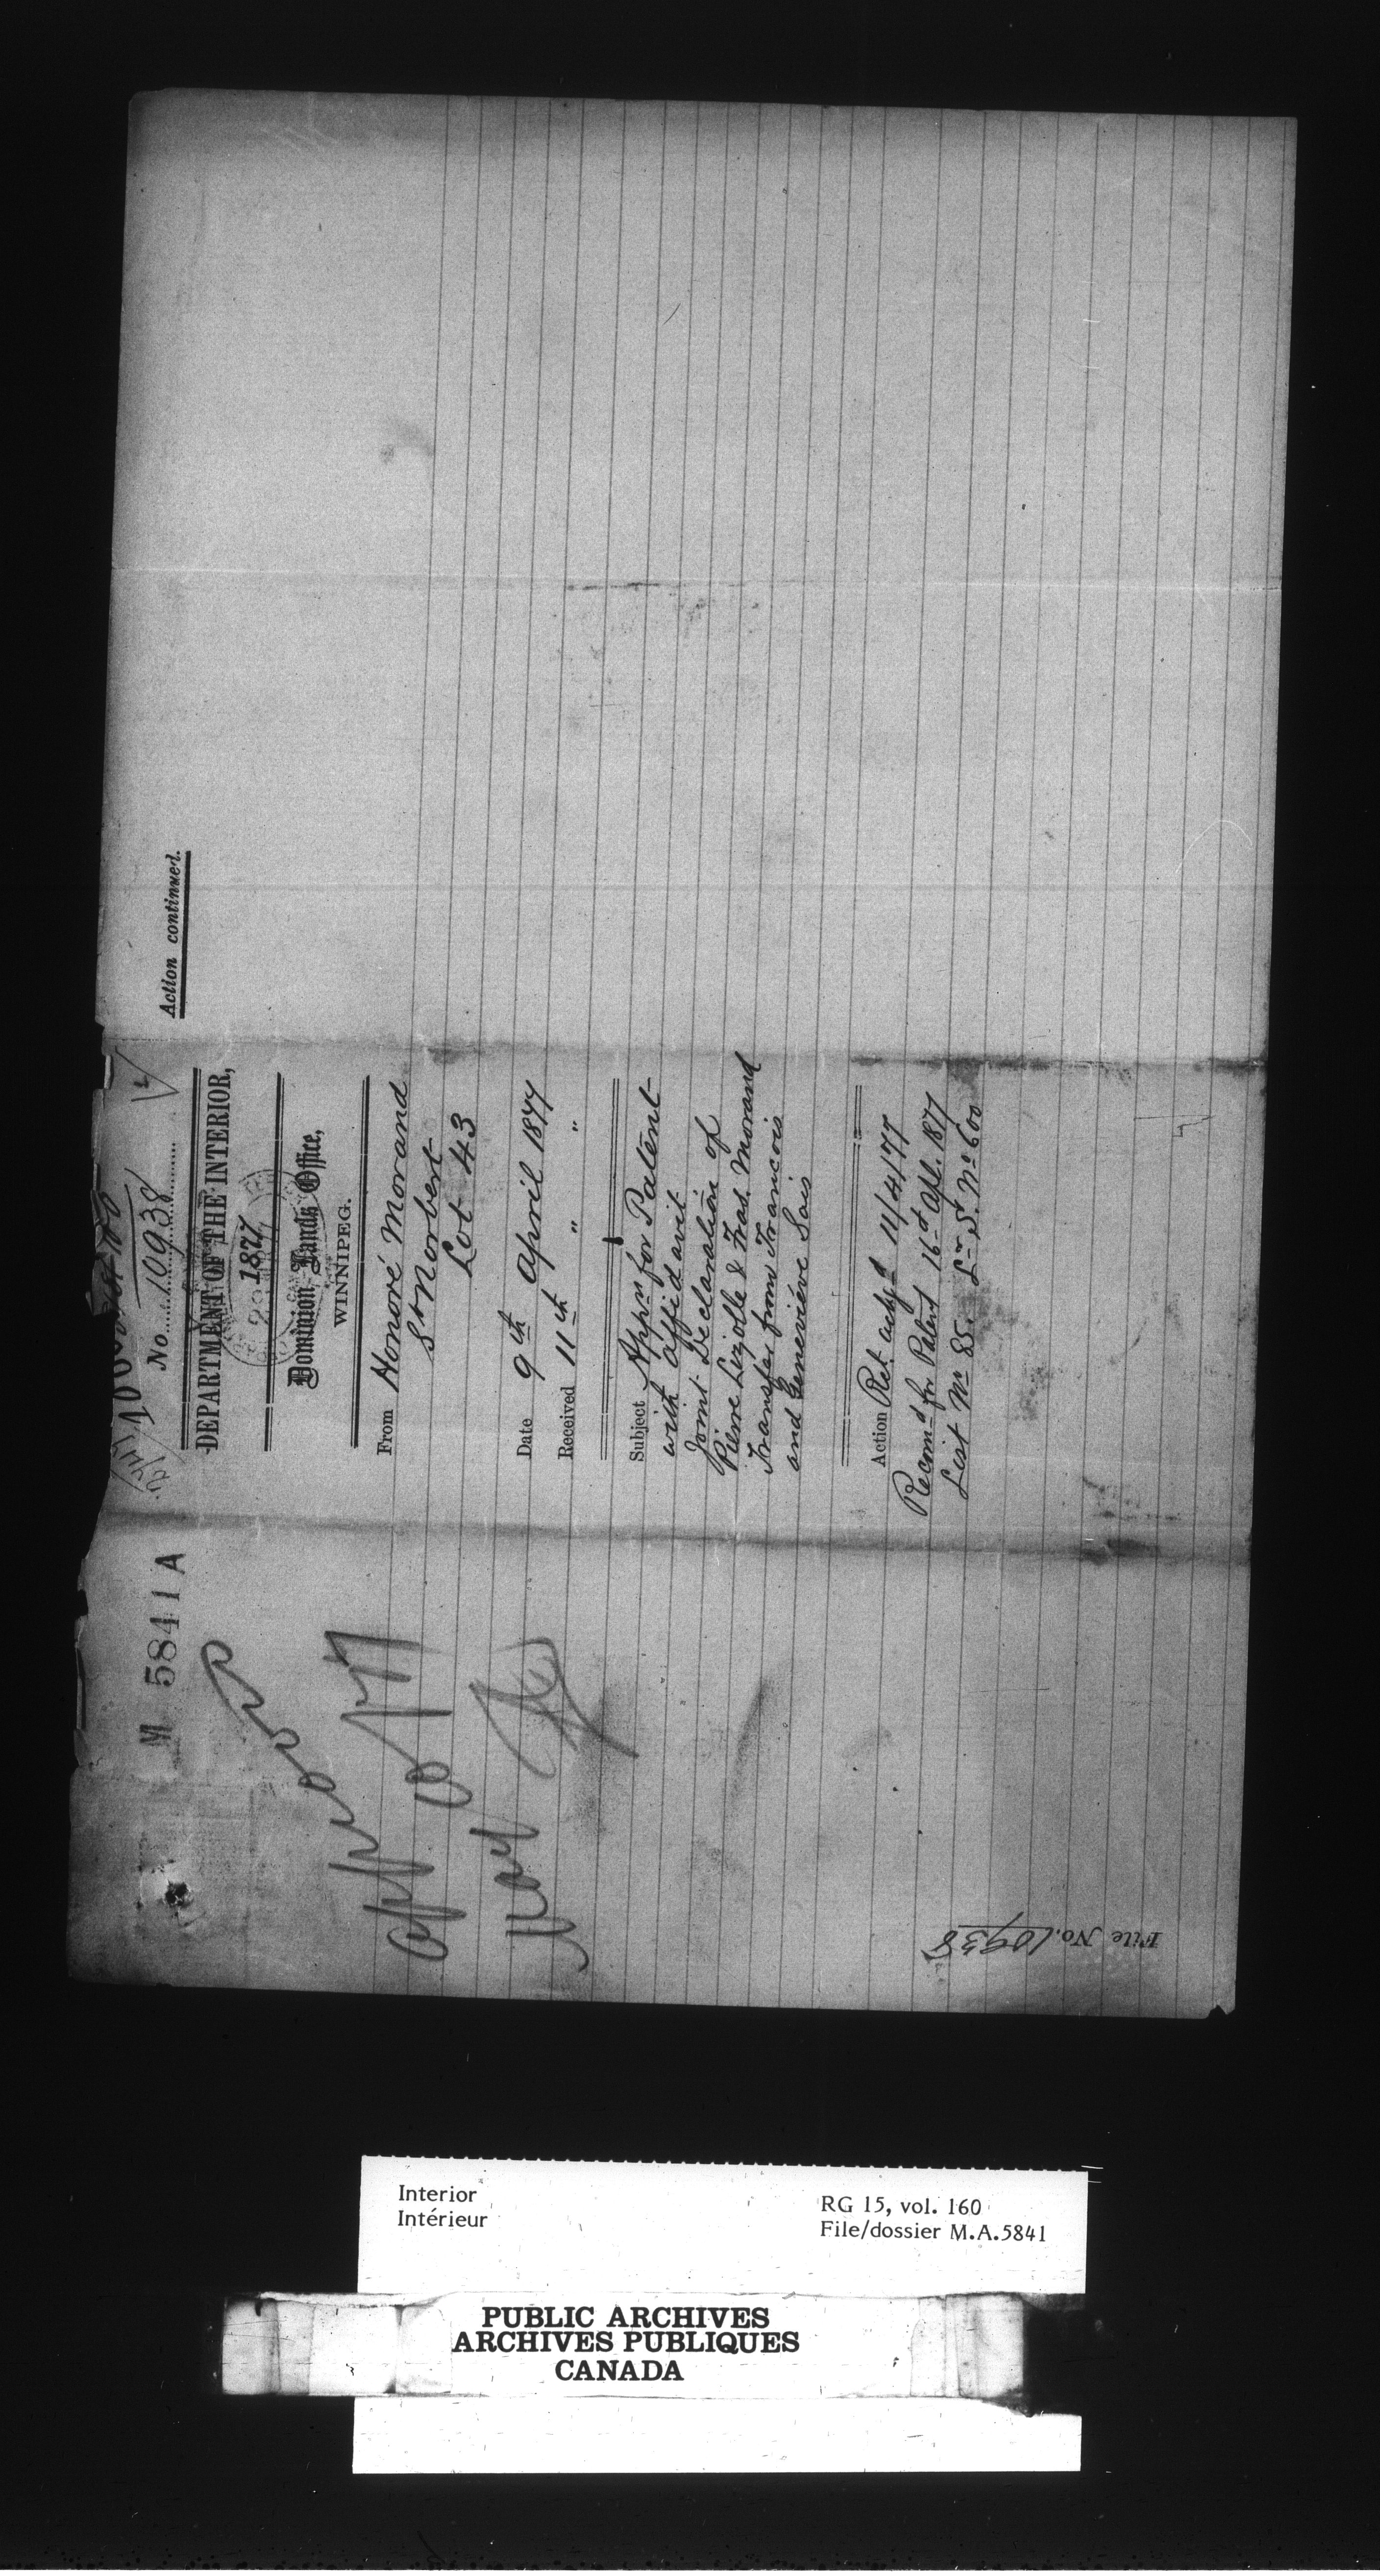 M 5841 A
Approved
No. 10938
DEPARTMENT OF THE INTERIOR,
1877
Dominion Lands Office,
WINNIPEG.
From Honoré Morand
St Norbert
Lot 43
Date 9th April 1877
Received 11th " "
Subject Appn for Patent
with affidavit
Joint Declaration of
Pierre Lizotte & Fras. Morand
Transfer from Francois
and Geneviéve Sais
Action Ret. ackgd 11/4/77
Recomd for Patent 16th Apl. 1877
List No 85. Lr S. No 600
Action continued.
File No. 10938
Interior
Intérieur
RG 15, vol. 160
File/dossier M.A.5841
PUBLIC ARCHIVES
ARCHIVES PUBLIQUES
CANADA